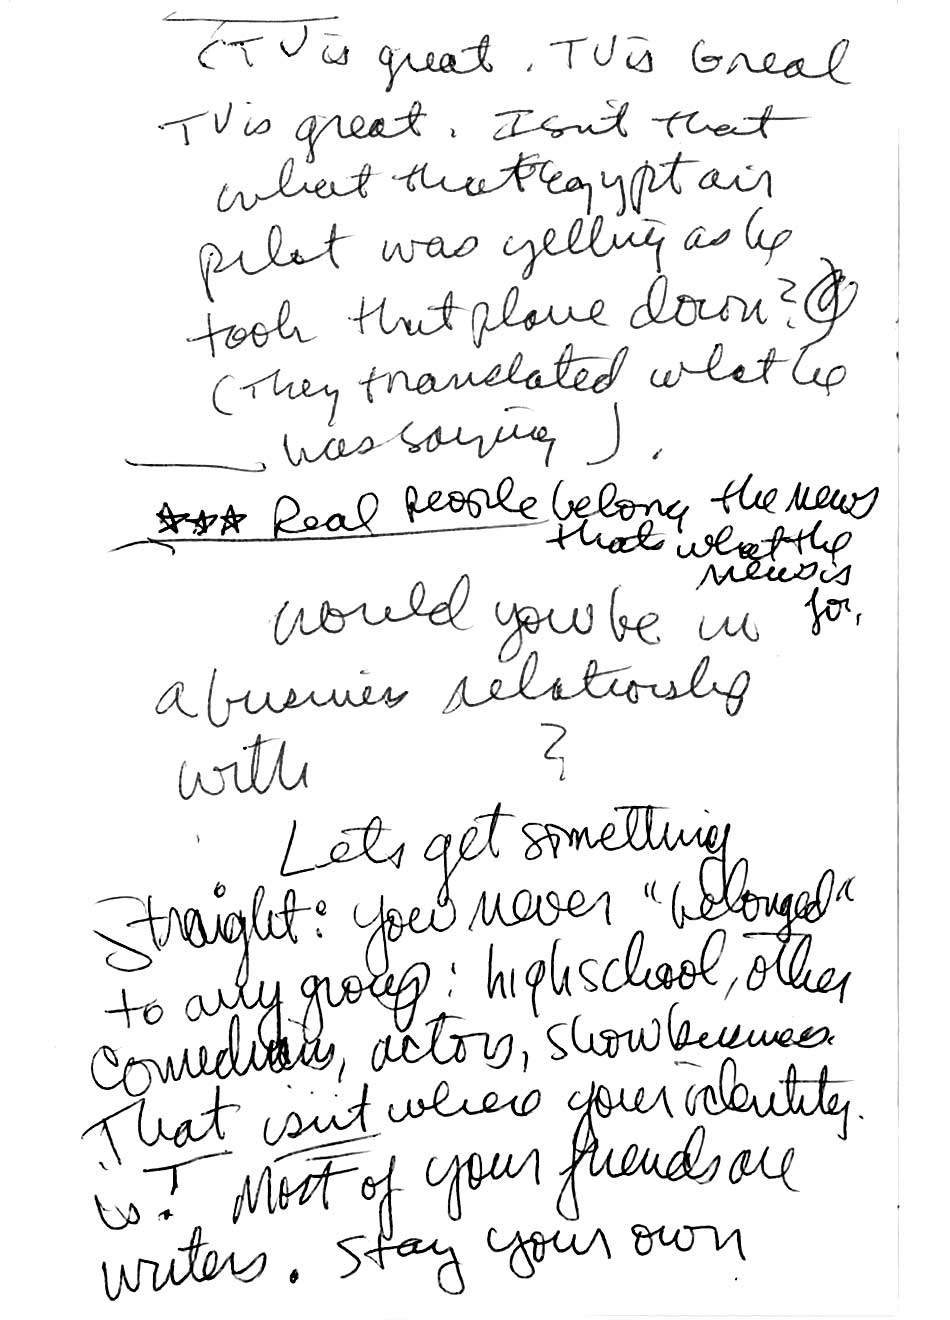 (TV is great. TV is Great
TV is great. Isn't that
what that Egypt air
pilot was yelling as he
took that plane down?
(They translated what he
was saying).
*** Real People belong the news
thats what the
news is
for.
would you be in
a business relationship
with ?
Lets get something
straight: you never "belonged"
to any group: high school, other
comedians, actors, show business.
That isn't where your identity
is! Most of your friends are
writers. Stay your own